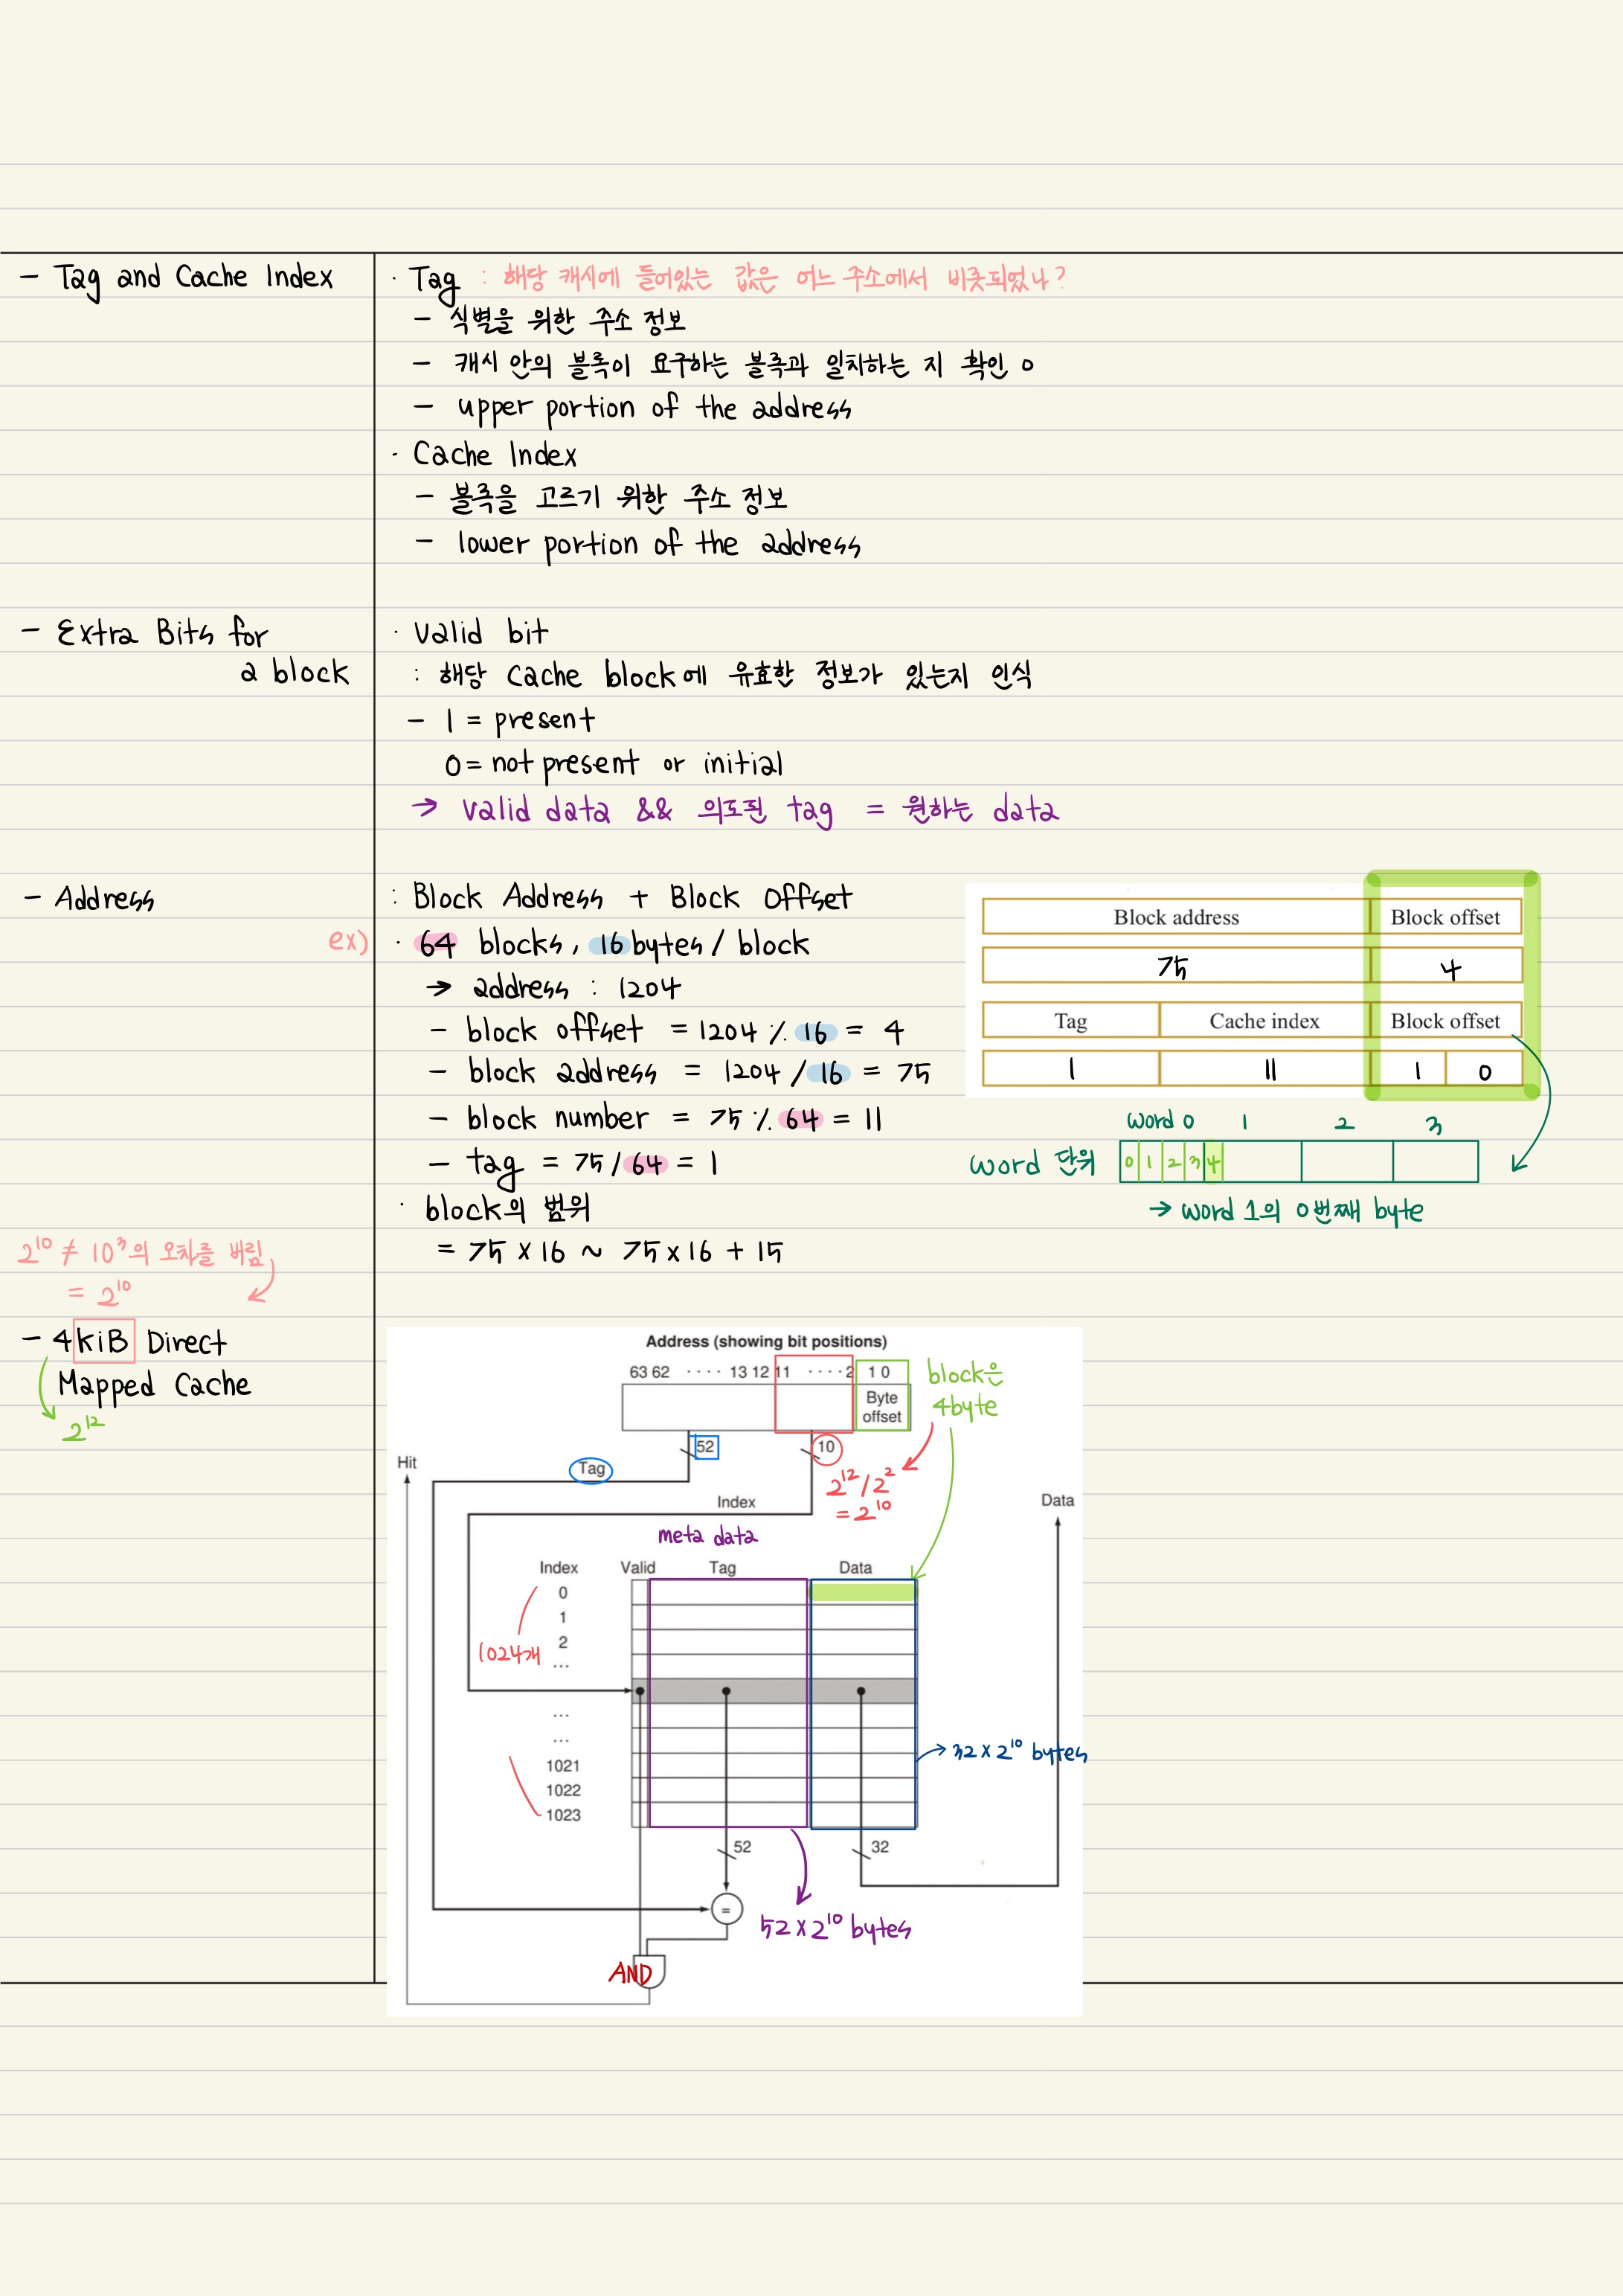 - Tag and Cache Index
· Tag : 해당 캐시에 들어있는 값은 어느 주소에서 비롯되었나?
- 식별을 위한 주소 정보
- 캐시 안의 블록이 요구하는 블록과 일치하는 지 확인 o
- upper portion of the address
· Cache Index
- 블록을 고르기 위한 주소 정보
- lower portion of the address
- Extra Bits for
a block
· Valid bit
: 해당 Cache block에 유효한 정보가 있는지 인식
- 1 = present
0 = not present or initial
→ Valid data && 의도된 tag = 원하는 data
- Address
: Block Address + Block Offset
ex) · 64 blocks, 16 bytes / block
→ address : 1204
- block offset = 1204 % 16 = 4
- block address = 1204 / 16 = 75
- block number = 75 % 64 = 11
- tag = 75 / 64 = 1
· block의 범위
= 75 × 16 ~ 75 × 16 + 15
Block address Block offset
75 4
Tag Cache index Block offset
1 11 1 0
word 0 1 2 3
word 단위 0 1 2 3 4
→ word 1의 0번째 byte
2¹⁰ ≠ 10³의 오차를 버림
= 2¹⁰
- 4 kiB Direct
Mapped Cache
2¹²
Address (showing bit positions)
63 62 ···· 13 12 11 ···· 2 1 0
Byte
offset
block은
4byte
52
10
Hit
Tag
2¹²/2²
= 2¹⁰
Index
Data
meta data
Index Valid Tag Data
0
1
2
...
1024개
...
...
1021
1022
1023
→ 32 × 2¹⁰ bytes
52
32
=
52 × 2¹⁰ bytes
AND